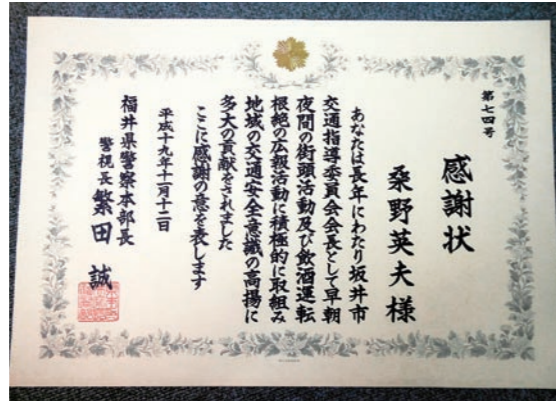 第七四号
感謝状
桑野英夫様
あなたは長年にわたり坂井市
交通指導委員会会長として早朝
夜間の街頭活動及び飲酒運転
根絶の広報活動に積極的に取組み
地域の交通安全意識の高揚に
多大の貢献をされました
ここに感謝の意を表します
平成十九年十一月十二日
福井県警察本部長
警視長 繁田誠